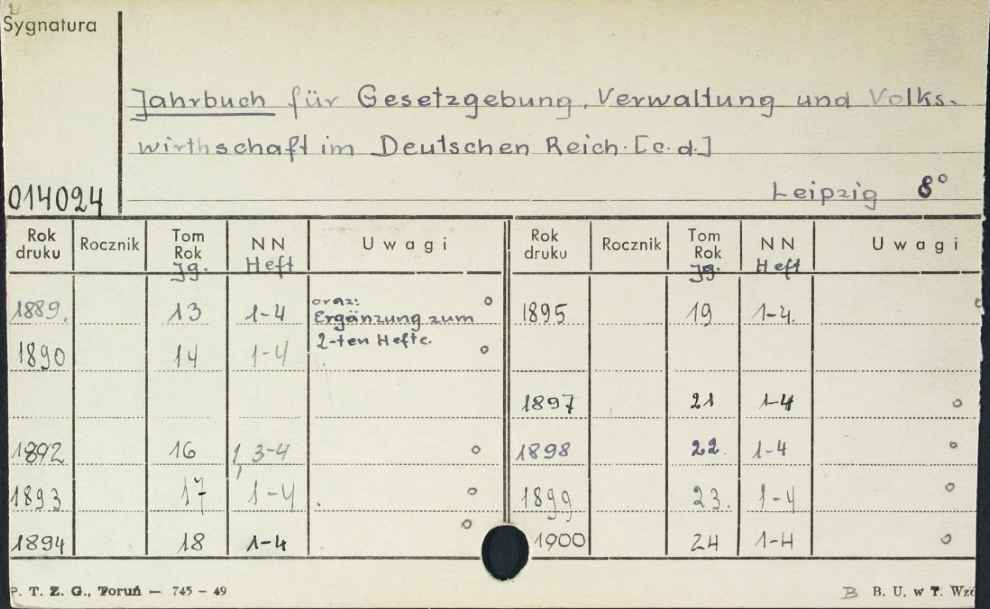 Sygnatura
Jahrbuch für Gesetzgebung, Verwaltung und Volks-
wirthschaft im Deutschen Reich. [c.d.]
014024
Leipzig 8°
Rok druku Rocznik Tom Rok Jg. NN Heft Uwagi Rok druku Rocznik Tom Rok Jg. NN Heft Uwagi
1889. 13 1-4 oraz: Ergänzung zum 1895 19 1-4.
2-ten Hefte.
1890 14 1-4
1897 21 1-4
1892 16 1, 3-4 1898 22. 1-4
1893 17 1-4 1899 23. 1-4
1894 18 1-4 1900 24 1-4
P. T. Z. G., Toruń — 745 — 49
B B. U. w T.